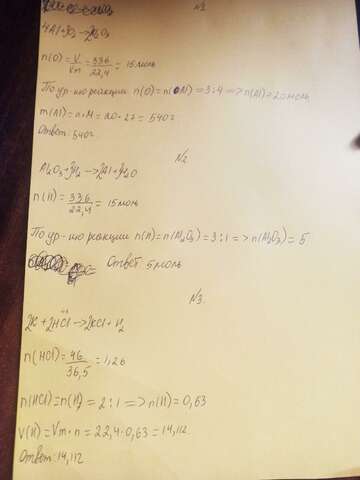 N1
4Al+3O₂→2Al₂O₃
n(O)=V/Vm=336/22,4=15моль
По ур-ию реакции n(O)=n(Al)=3:4=>n(Al)=20моль
m(Al)=n•M=20•27=540г
Ответ: 540г
N2
Al₂O₃+3H₂→2Al+3H₂O
n(H)=336/22,4=15моль
По ур-ию реакции n(H)=n(Al₂O₃)=3:1=>n(Al₂O₃)=5
Ответ: 5моль
N3.
2K+2HCl→2KCl+H₂
n(HCl)=46/36,5=1,26
n(HCl)=n(H)=2:1=>n(H)=0,63
V(H)=Vm•n=22,4•0,63=14,112
Ответ: 14,112